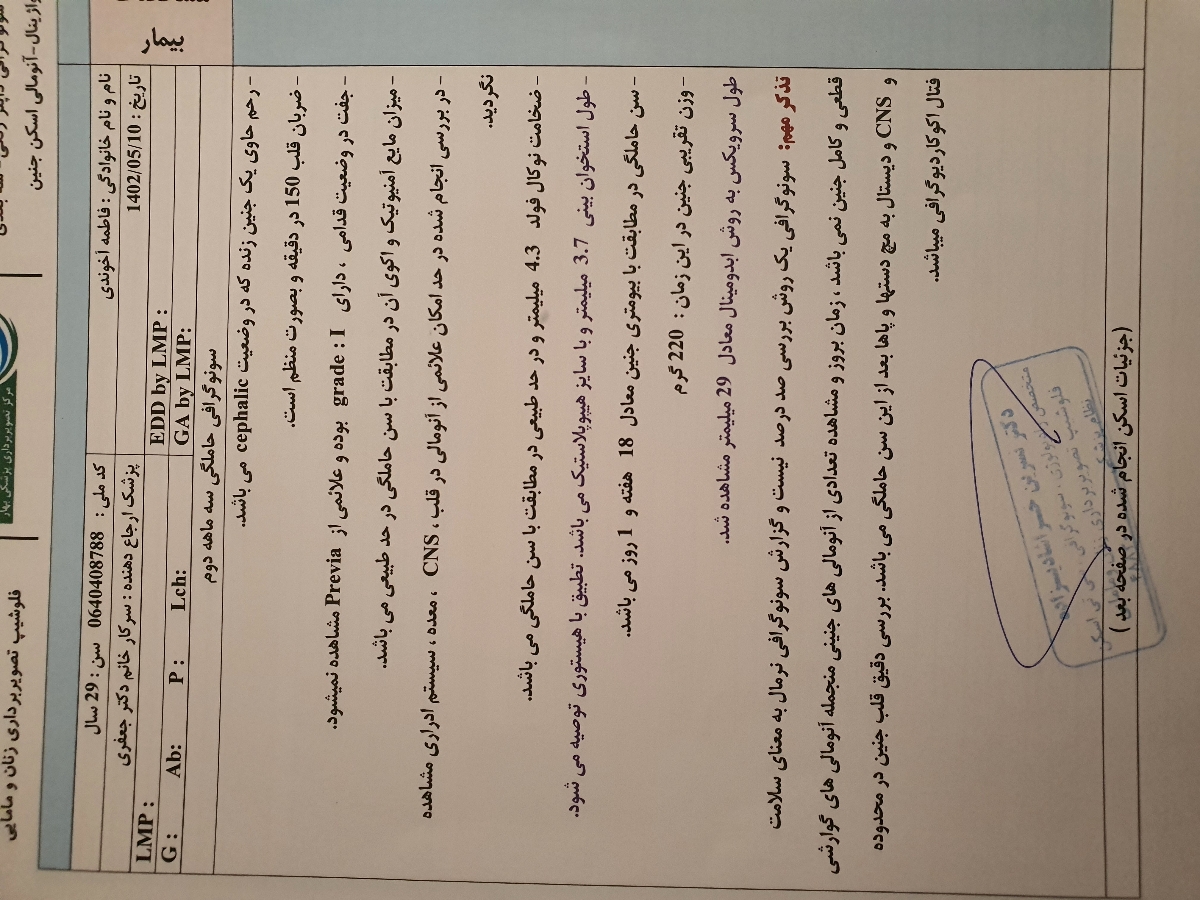 واژینال-آنومالی اسکن جنین
فلوشیپ تصویربرداری زنان و مامایی
مرکز تصویربرداری پزشکی بهار
بیمار
نام و نام خانوادگی : فاطمه آخوندی
کد ملی : 0640408788 سن : 29 سال
تاریخ : 1402/05/10
پزشک ارجاع دهنده : سرکار خانم دکتر جعفری
LMP : EDD by LMP :
G : Ab: P : Lch: GA by LMP:
سونوگرافی حاملگی سه ماهه دوم
- رحم حاوی یک جنین زنده که در وضعیت cephalic می باشد.
- ضربان قلب 150 در دقیقه و بصورت منظم است.
- جفت در وضعیت قدامی ، دارای grade : I بوده و علائمی از Previa مشاهده نمیشود.
- میزان مایع آمنیوتیک و اکوی آن در مطابقت با سن حاملگی در حد طبیعی می باشد.
- در بررسی انجام شده در حد امکان علائمی از آنومالی در قلب ، CNS ، معده ، سیستم ادراری مشاهده
نگردید.
- ضخامت نوکال فولد 4.3 میلیمتر و در حد طبیعی در مطابقت با سن حاملگی می باشد.
- طول استخوان بینی 3.7 میلیمتر و با سایز هیپوپلاستیک می باشد. تطبیق با هیستوری توصیه می شود.
- سن حاملگی در مطابقت با بیومتری جنین معادل 18 هفته و 1 روز می باشد.
- وزن تقریبی جنین در این زمان : 220 گرم
طول سرویکس به روش ابدومینال معادل 29 میلیمتر مشاهده شد.
تذکر مهم: سونوگرافی یک روش بررسی صد درصد نیست و گزارش سونوگرافی نرمال به معنای سلامت
قطعی و کامل جنین نمی باشد ، زمان بروز و مشاهده تعدادی از آنومالی های جنینی منجمله آنومالی های گوارشی
و CNS و دیستال به مچ دستها و پاها بعد از این سن حاملگی می باشد. بررسی دقیق قلب جنین در محدوده
فتال اکوکاردیوگرافی میباشد.
(جزئیات اسکن انجام شده در صفحه بعد )